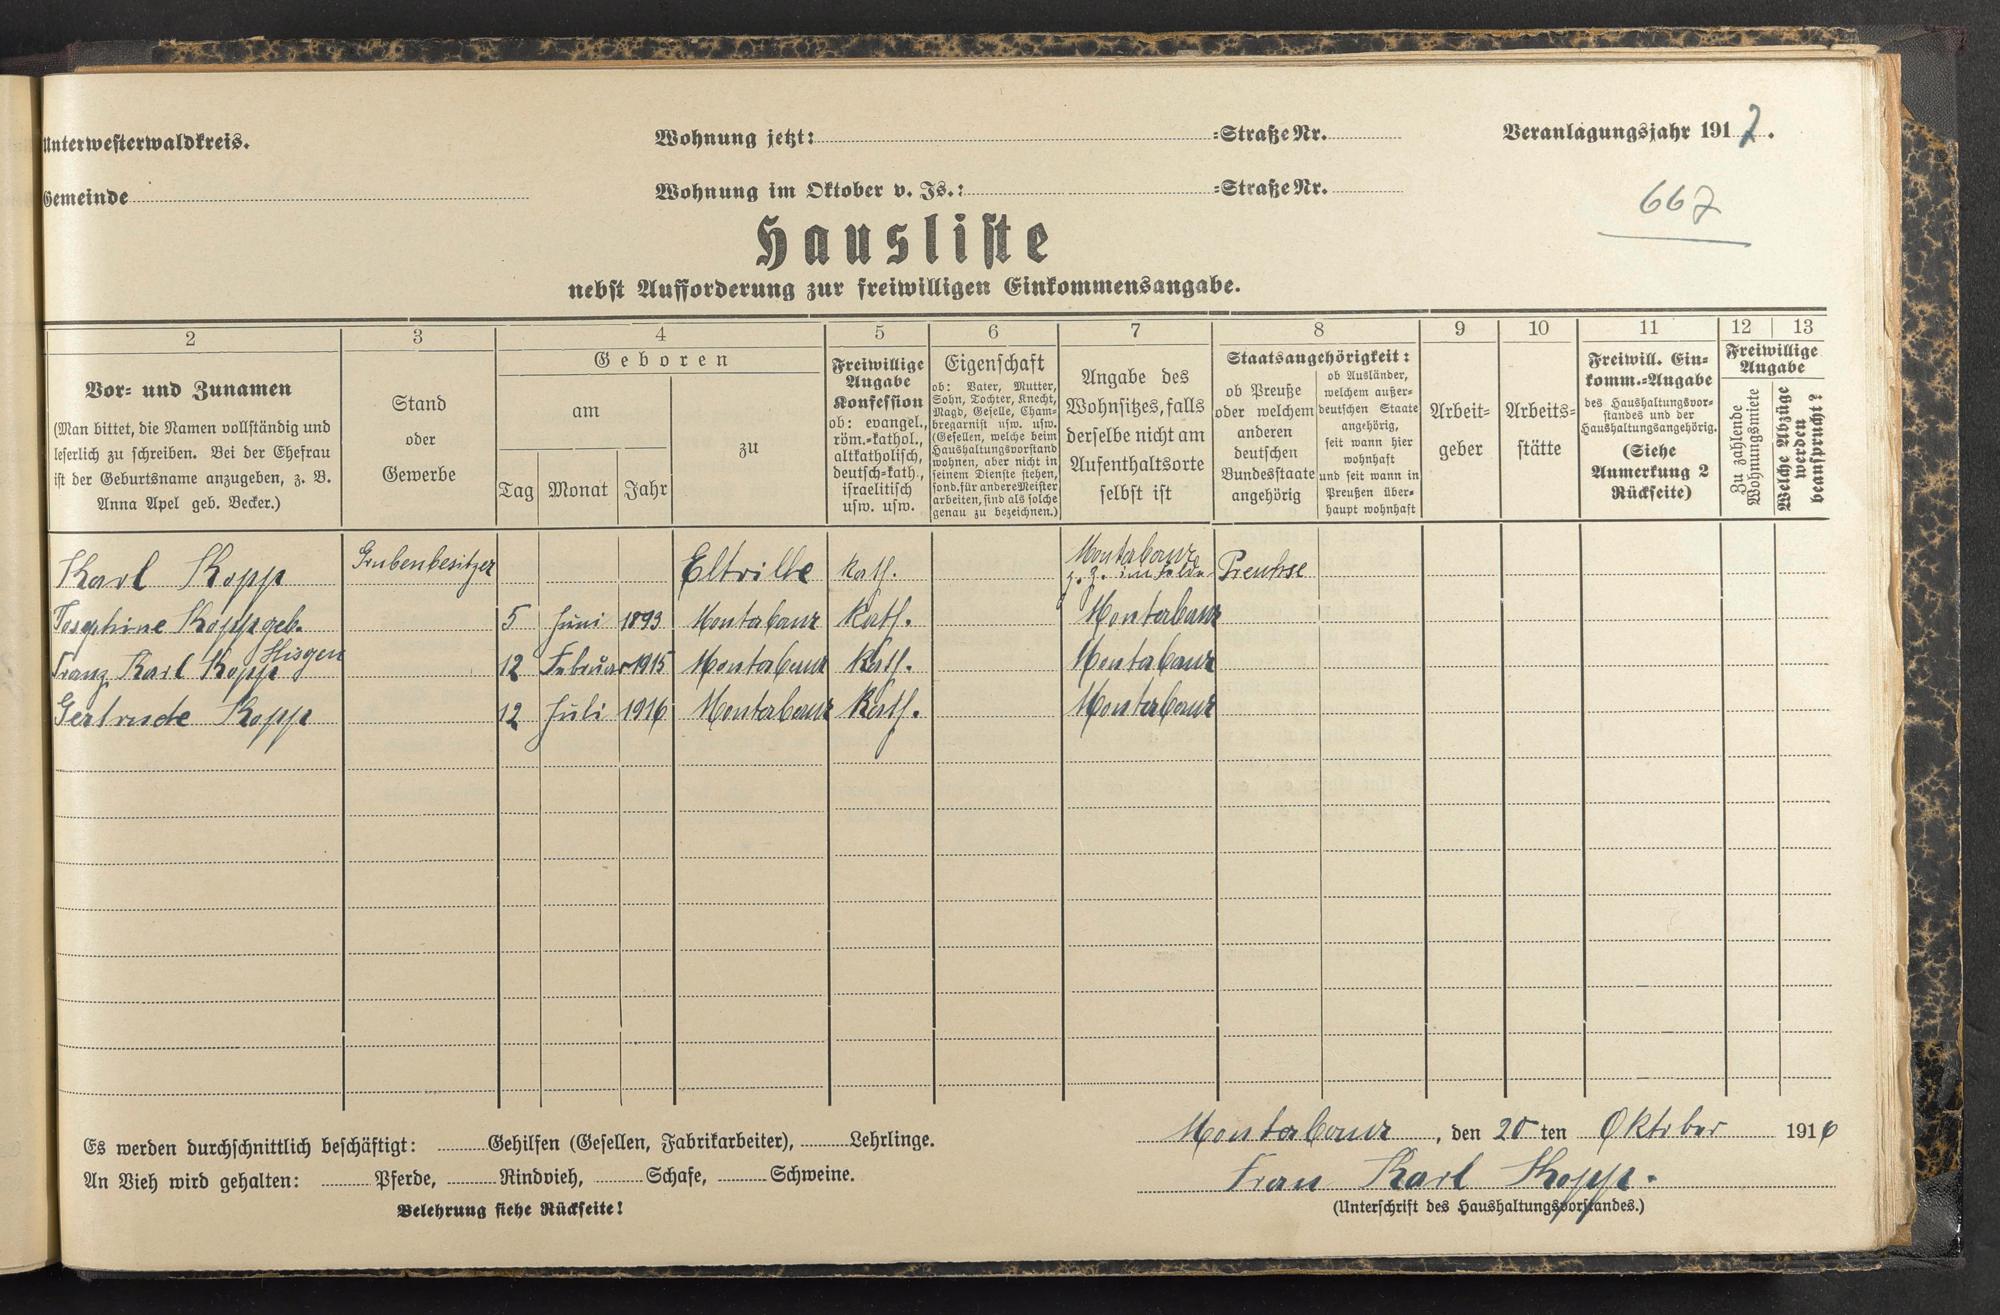 Unterwesterwaldkreis.
Wohnung jetzt: =Straße Nr.
Veranlagungsjahr 1917.
Gemeinde
Wohnung im Oktober v. Js.: =Straße Nr.
667
Hausliste
nebst Aufforderung zur freiwilligen Einkommensangabe.
2 3 4 5 6 7 8 9 10 11 12 13
Vor- und Zunamen
(Man bittet, die Namen vollständig und
leserlich zu schreiben. Bei der Ehefrau
ist der Geburtsname anzugeben, z. B.
Anna Apel geb. Becker.)
Stand
oder
Gewerbe
Geboren
am
Tag Monat Jahr
zu
Freiwillige
Angabe
Konfession
ob: evangel.,
röm.-kathol.,
altkatholisch,
deutsch-kath.,
israelitisch
usw. usw.
Eigenschaft
ob: Vater, Mutter,
Sohn, Tochter, Knecht,
Magd, Geselle, Cham-
bregarnist usw. usw.
(Gesellen, welche beim
Haushaltungsvorstand
wohnen, aber nicht in
seinem Dienste stehen,
sond. für andere Meister
arbeiten, sind als solche
genau zu bezeichnen.)
Angabe des
Wohnsitzes, falls
derselbe nicht am
Aufenthaltsorte
selbst ist
Staatsangehörigkeit:
ob Preuße
oder welchem
anderen
deutschen
Bundesstaate
angehörig
ob Ausländer,
welchem außer-
deutschen Staate
angehörig,
seit wann hier
wohnhaft
und seit wann in
Preußen über-
haupt wohnhaft
Arbeit-
geber
Arbeits-
stätte
Freiwill. Ein-
komm.-Angabe
des Haushaltungsvor-
standes und der
Haushaltungsangehörig.
(Siehe
Anmerkung 2
Rückseite)
Freiwillige
Angabe
Zu zahlende
Wohnungsmiete
Welche Abzüge
werden
beansprucht?
Karl Kopp Grubenbesitzer Eltville kath. Montabaur z. Z. im Felde Preuhse
Josephine Kopp geb. Hisgen 5 Juni 1893 Montabaur Kath. Montabaur
Franz Karl Kopp 12 Februar 1915 Montabaur Kath. Montabaur
Gertrude Kopp 12 Juli 1916 Montabaur Kath. Montabaur
Es werden durchschnittlich beschäftigt: Gehilfen (Gesellen, Fabrikarbeiter), Lehrlinge.
An Vieh wird gehalten: Pferde, Rindvieh, Schafe, Schweine.
Belehrung siehe Rückseite!
Montabaur, den 20 ten Oktober 1916
Frau Karl Kopp.
(Unterschrift des Haushaltungsvorstandes.)